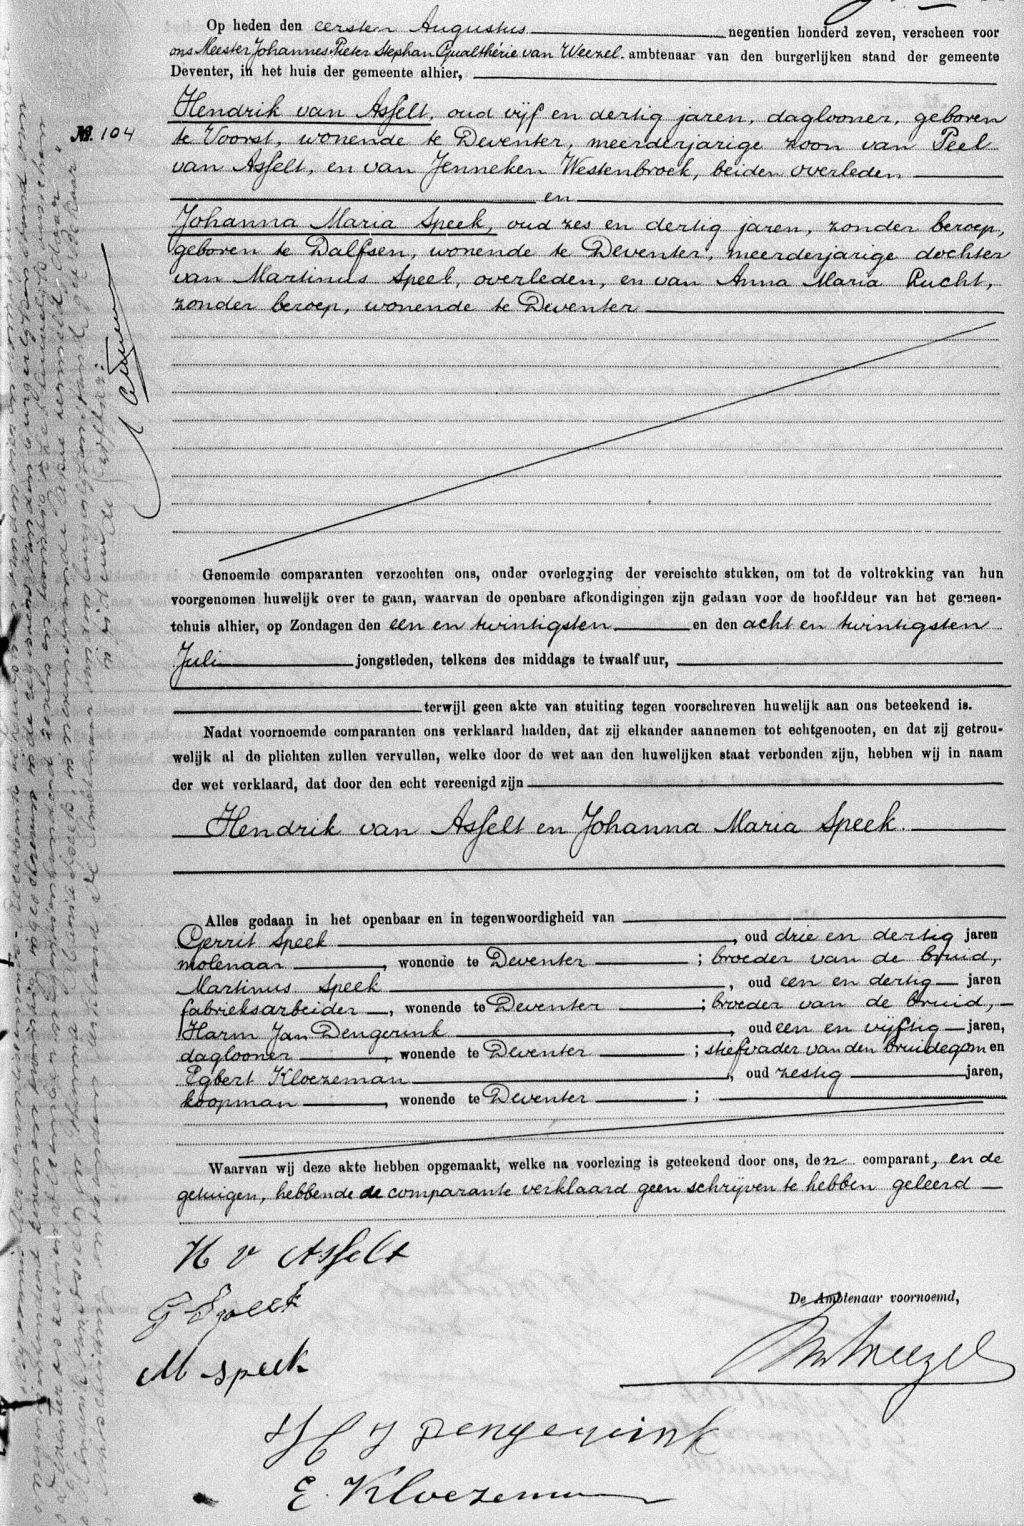 Op heden den eersten Augustus negentien honderd zeven, verscheen voor
ons Meester Johannes Pieter Stephan Gualthérie van Weezel ambtenaar van den burgerlijken stand der gemeente
Deventer, in het huis der gemeente alhier,
No. 104
Hendrik van Asselt, oud vijf en dertig jaren, daglooner, geboren
te Voorst, wonende te Deventer, meerderjarige zoon van Peel
van Asselt, en van Jenneken Westenbroek, beiden overleden
en
Johanna Maria Speek, oud zes en dertig jaren, zonder beroep,
geboren te Dalfsen, wonende te Deventer, meerderjarige dochter
van Martinus Speek, overleden, en van Anna Maria Rucht,
zonder beroep, wonende te Deventer
Genoemde comparanten verzochten ons, onder overlegging der vereischte stukken, om tot de voltrekking van hun
voorgenomen huwelijk over te gaan, waarvan de openbare afkondigingen zijn gedaan voor de hoofddeur van het gemeen-
tehuis alhier, op Zondagen den een en twintigsten en den acht en twintigsten
Juli jongstleden, telkens des middags te twaalf uur,
terwijl geen akte van stuiting tegen voorschreven huwelijk aan ons beteekend is.
Nadat voornoemde comparanten ons verklaard hadden, dat zij elkander aannemen tot echtgenooten, en dat zij getrou-
welijk al de plichten zullen vervullen, welke door de wet aan den huwelijken staat verbonden zijn, hebben wij in naam
der wet verklaard, dat door den echt vereenigd zijn
Hendrik van Asselt en Johanna Maria Speek.
Alles gedaan in het openbaar en in tegenwoordigheid van
Gerrit Speek, oud drie en dertig jaren
molenaar, wonende te Deventer; broeder van de bruid,
Martinus Speek, oud een en dertig jaren
fabrieksarbeider, wonende te Deventer; broeder van de bruid,
Harm Jan Dengerink, oud een en vijftig jaren,
daglooner, wonende te Deventer; stiefvader van den bruidegom en
Egbert Kloezeman, oud zestig jaren,
koopman, wonende te Deventer;
Waarvan wij deze akte hebben opgemaakt, welke na voorlezing is geteekend door ons, den comparant, en de
getuigen, hebbende de comparante verklaard geen schrijven te hebben geleerd
H v Asselt
G Speek
De Ambtenaar voornoemd,
M speek
H J Dengerink
E. Kloezeman